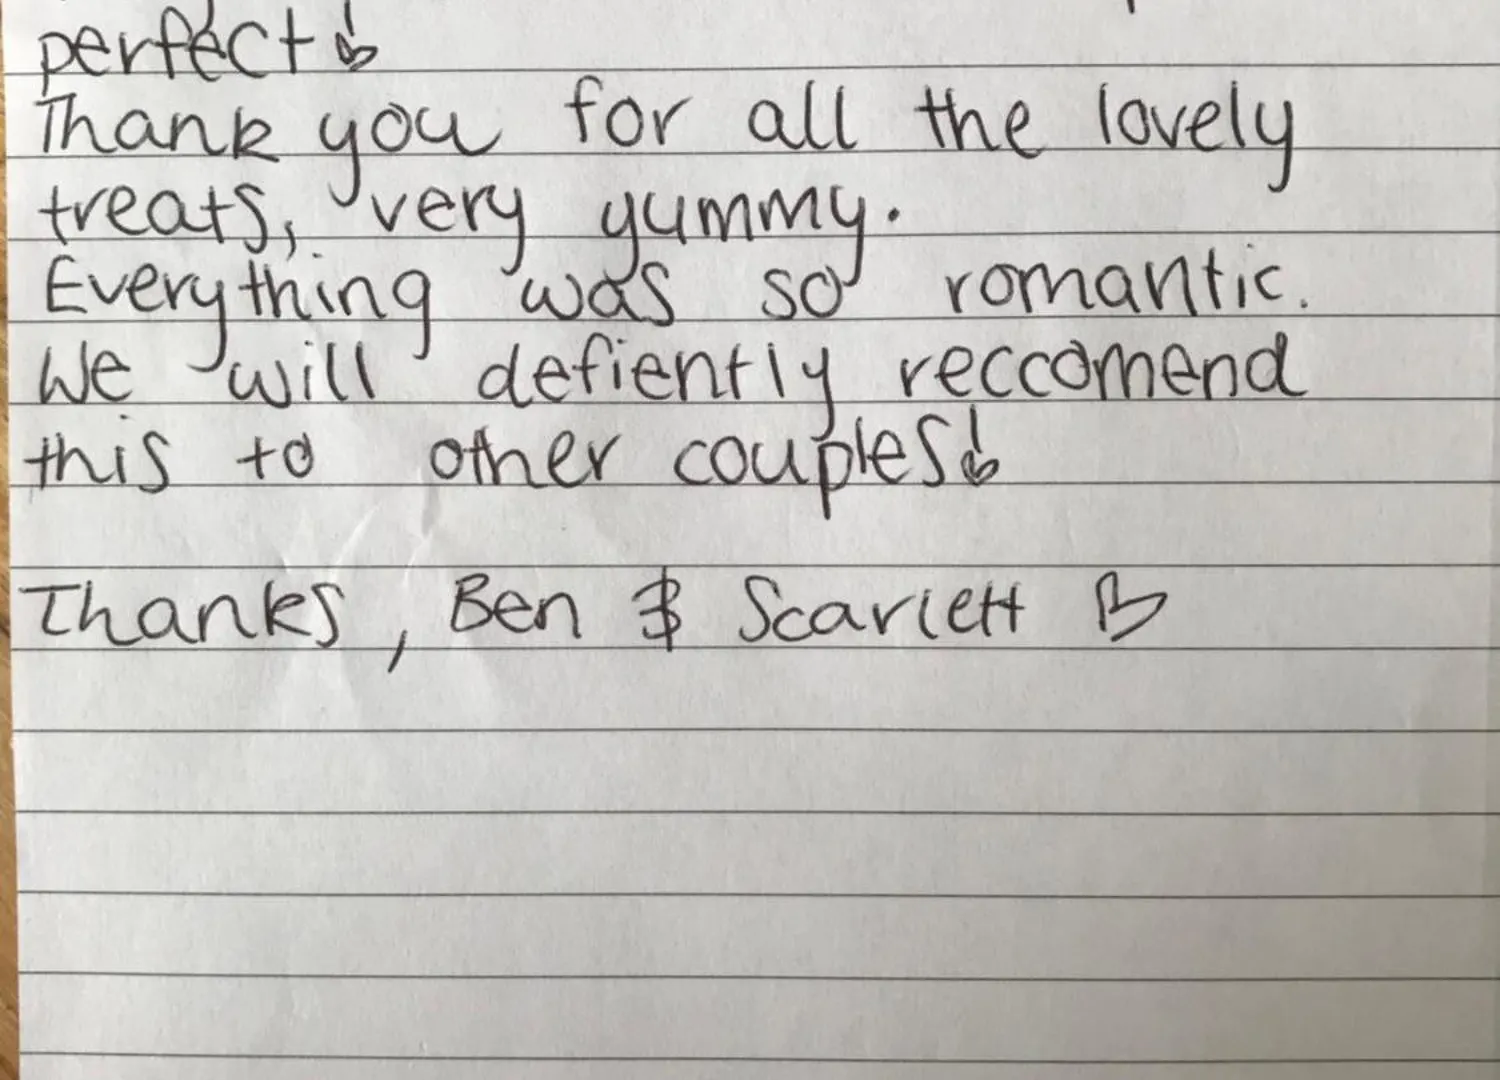 perfect!
Thank you for all the lovely
treats, very yummy.
Everything was so romantic.
We will defiently reccomend
this to other couples!
Thanks, Ben & Scarlett ♡